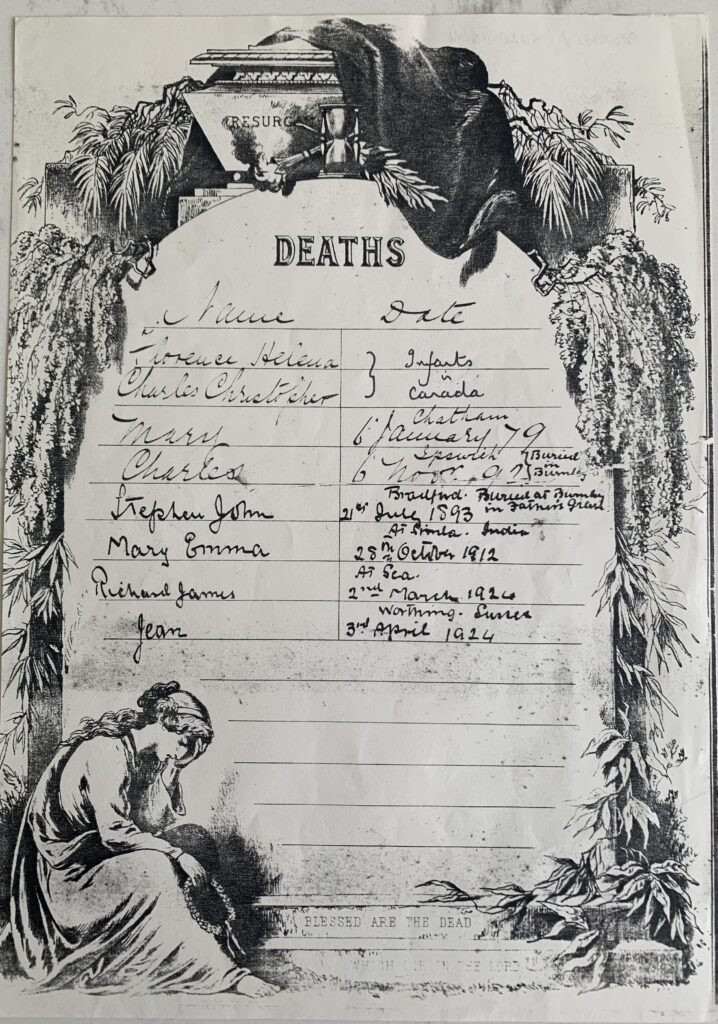 RESURGAM
DEATHS
Name Date
Florence Helena } Infants
in
Charles Christopher } Canada
Chatham
Mary 6 January 79
Ipswich { Buried
in
Charles 6 Novr. 92 Burnby
Bradford. Buried at Burnby
Stephen John 21st July 1893 in Father's Grave
At Simla. India
Mary Emma 28th October 1912
At Sea.
Richard James 2nd March 1924
Worthing. Sussex
Jean 3rd April 1924
BLESSED ARE THE DEAD
WHICH DIE IN THE LORD